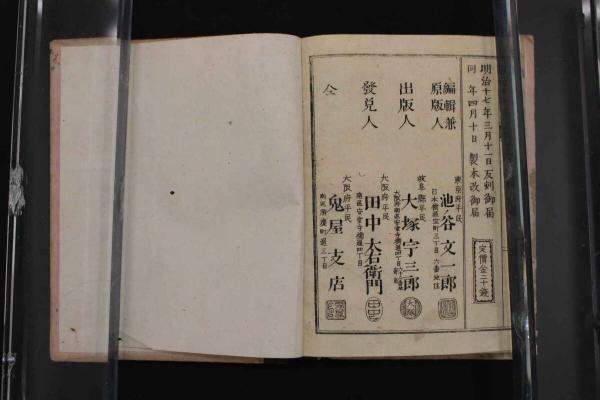 明治十七年三月十一日反刻御届
同 年四月十日 製本改御届
定價金三十錢
編輯兼
原版人
東京府平民
池谷文一郎
出版人
岐阜縣平民
大塚宇三郎
大塚
發兌人
大阪府平民
南區安堂寺橋通四丁目
田中太右衛門
田中
仝
大阪府平民
兎屋支店